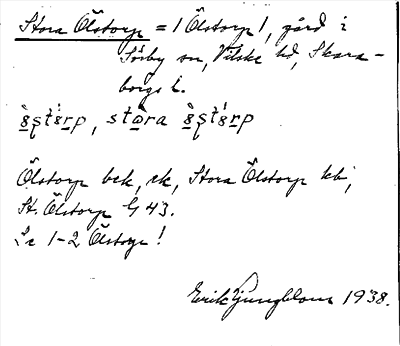 Stora Ölstorp = 1 Ölstorp 1, gård i
Sörby sn, Vilske hd, Skara-
borgs l.
stora
Ölstorp bek, ek, Stora Ölstorp kb,
St. Ölstorp G 43.
Se 1-2 Ölstorp!
Erik Ljungblom 1938.